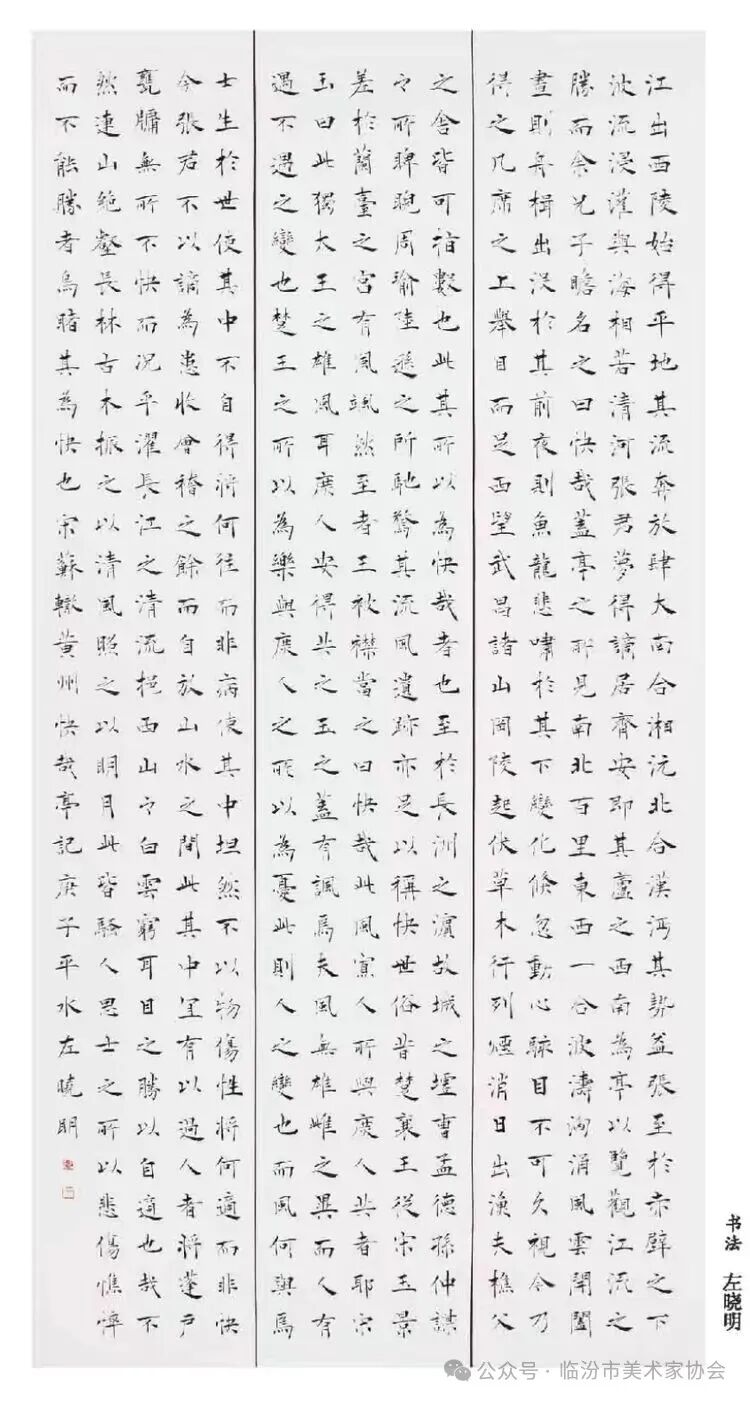 江出西陵始得平地其流奔放肆大南合湘沅北合漢沔其勢益張至於赤壁之下
波流浸灌與海相若清河張君夢得謫居齊安即其廬之西南為亭以覽觀江流之
勝而余兄子瞻名之曰快哉蓋亭之所見南北百里東西一合波濤洶涌風雲開闔
晝則舟楫出沒於其前夜則魚龍悲嘯於其下變化倏忽動心駭目不可久視今乃
得之几席之上舉目而足西望武昌諸山岡陵起伏草木行列煙消日出漁夫樵父
之舍皆可指數也此其所以為快哉者也至於長洲之濱故城之墟曹孟德孫仲謀
々所睥睨周瑜陸遜之所馳騖其流風遺跡亦足以稱快世俗昔楚襄王從宋玉景
差於蘭臺之宮有風颯然至者王披襟當之曰快哉此風寡人所與庶人共者耶宋
玉曰此獨大王之雄風耳庶人安得共之玉之蓋有諷焉夫風無雄雌之異而人有
遇不遇之變也楚王之所以為樂與庶人之所以為憂此則人之變也而風何與焉
士生於世使其中不自得將何往而非病使其中坦然不以物傷性將何適而非快
今張君不以謫為患收會稽之餘而自放山水之間此其中宜有以過人者將蓬戶
甕牖無所不快而況乎濯長江之清流挹西山々白雲窮耳目之勝以自適也哉不
然連山絕壑長林古木振之以清風照之以明月此皆騷人思士之所以悲傷憔悴
而不能勝者烏睹其為快也宋蘇轍黃州快哉亭記庚子平水左曉明
书法 左晓明
公众号·临汾市美术家协会